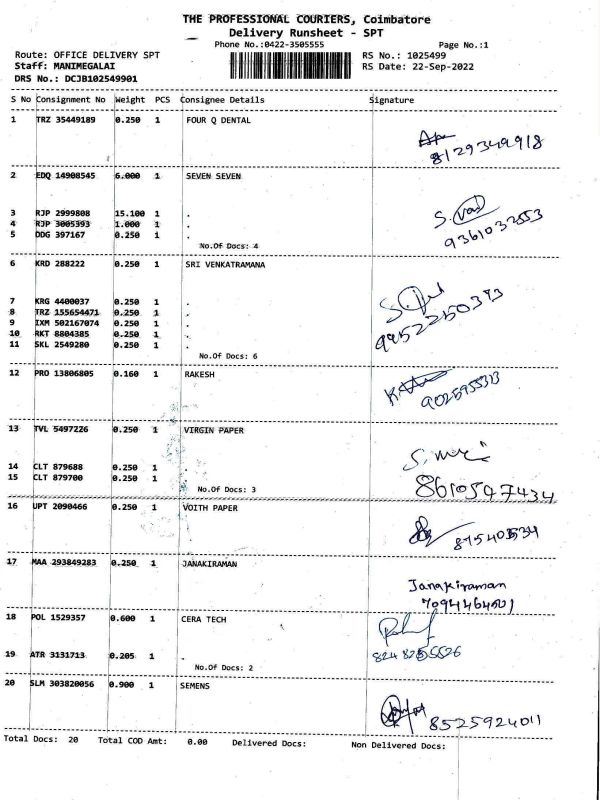 THE PROFESSIONAL COURIERS, Coimbatore
Delivery Runsheet - SPT
Phone No.:0422-3505555 Page No.:1
Route: OFFICE DELIVERY SPT RS No.: 1025499
Staff: MANIMEGALAI RS Date: 22-Sep-2022
DRS No.: DCJB102549901
S No Consignment No Weight PCS Consignee Details Signature
1 TRZ 35449189 0.250 1 FOUR Q DENTAL
8129349918
2 EDQ 14908545 6.000 1 SEVEN SEVEN
3 RJP 2999808 15.100 1 .
4 RJP 3005393 1.000 1 .
9361032553
5 DDG 397167 0.250 1 .
No.Of Docs: 4
6 KRD 288222 0.250 1 SRI VENKATRAMANA
7 KRG 4400037 0.250 1 .
8 TRZ 155654471 0.250 1 .
9 IXM 502167074 0.250 1 .
10 RKT 8804385 0.250 1 .
11 SKL 2549280 0.250 1 .
No.Of Docs: 6
12 PRO 13806805 0.160 1 RAKESH
13 TVL 5497226 0.250 1 VIRGIN PAPER
14 CLT 879688 0.250 1 .
15 CLT 879700 0.250 1 .
No.Of Docs: 3 8610597434
16 UPT 2090466 0.250 1 VOITH PAPER
17 MAA 293849283 0.250 1 JANAKIRAMAN
Janakiraman
7094464501
18 POL 1529357 0.600 1 CERA TECH
19 ATR 3131713 0.205 1 .
No.Of Docs: 2
20 SLM 303820056 0.900 1 SEMENS
8525924011
Total Docs: 20 Total COD Amt: 0.00 Delivered Docs: Non Delivered Docs: